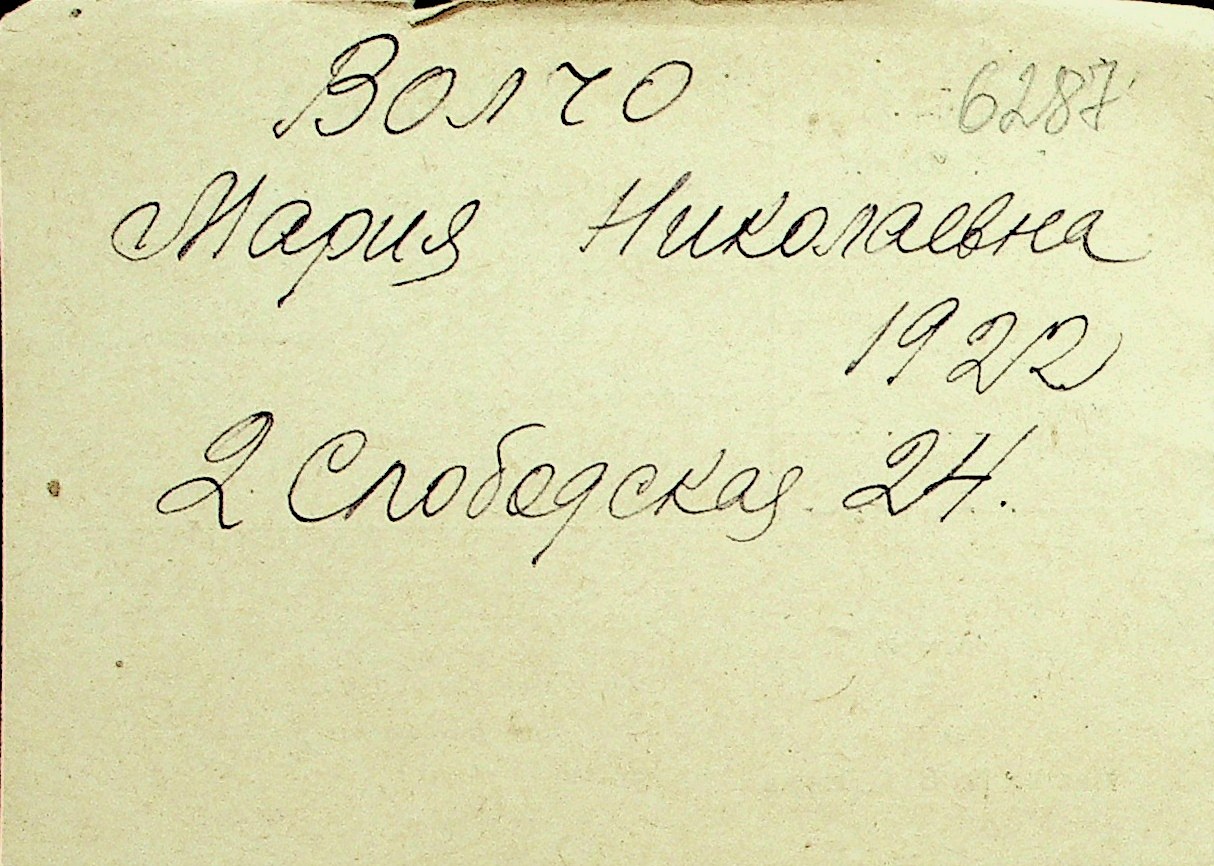 Волчо 6287
Мария Николаевна
1922
2 Слободская 24.